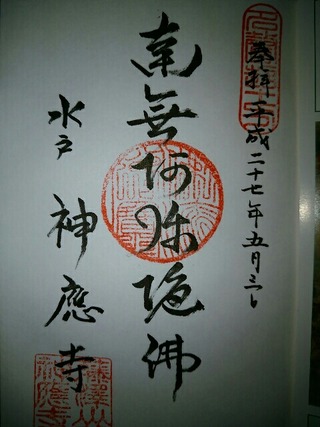 奉拝 平成二十七年五月三日
南無阿弥陀佛
水戸 神應寺